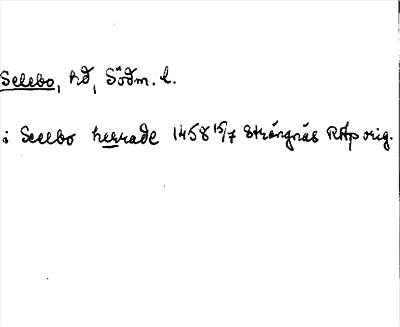 Selebo, hd, Södm. l.
i Seelbo herrade 1458 15/7 Strängnäs RAp orig.